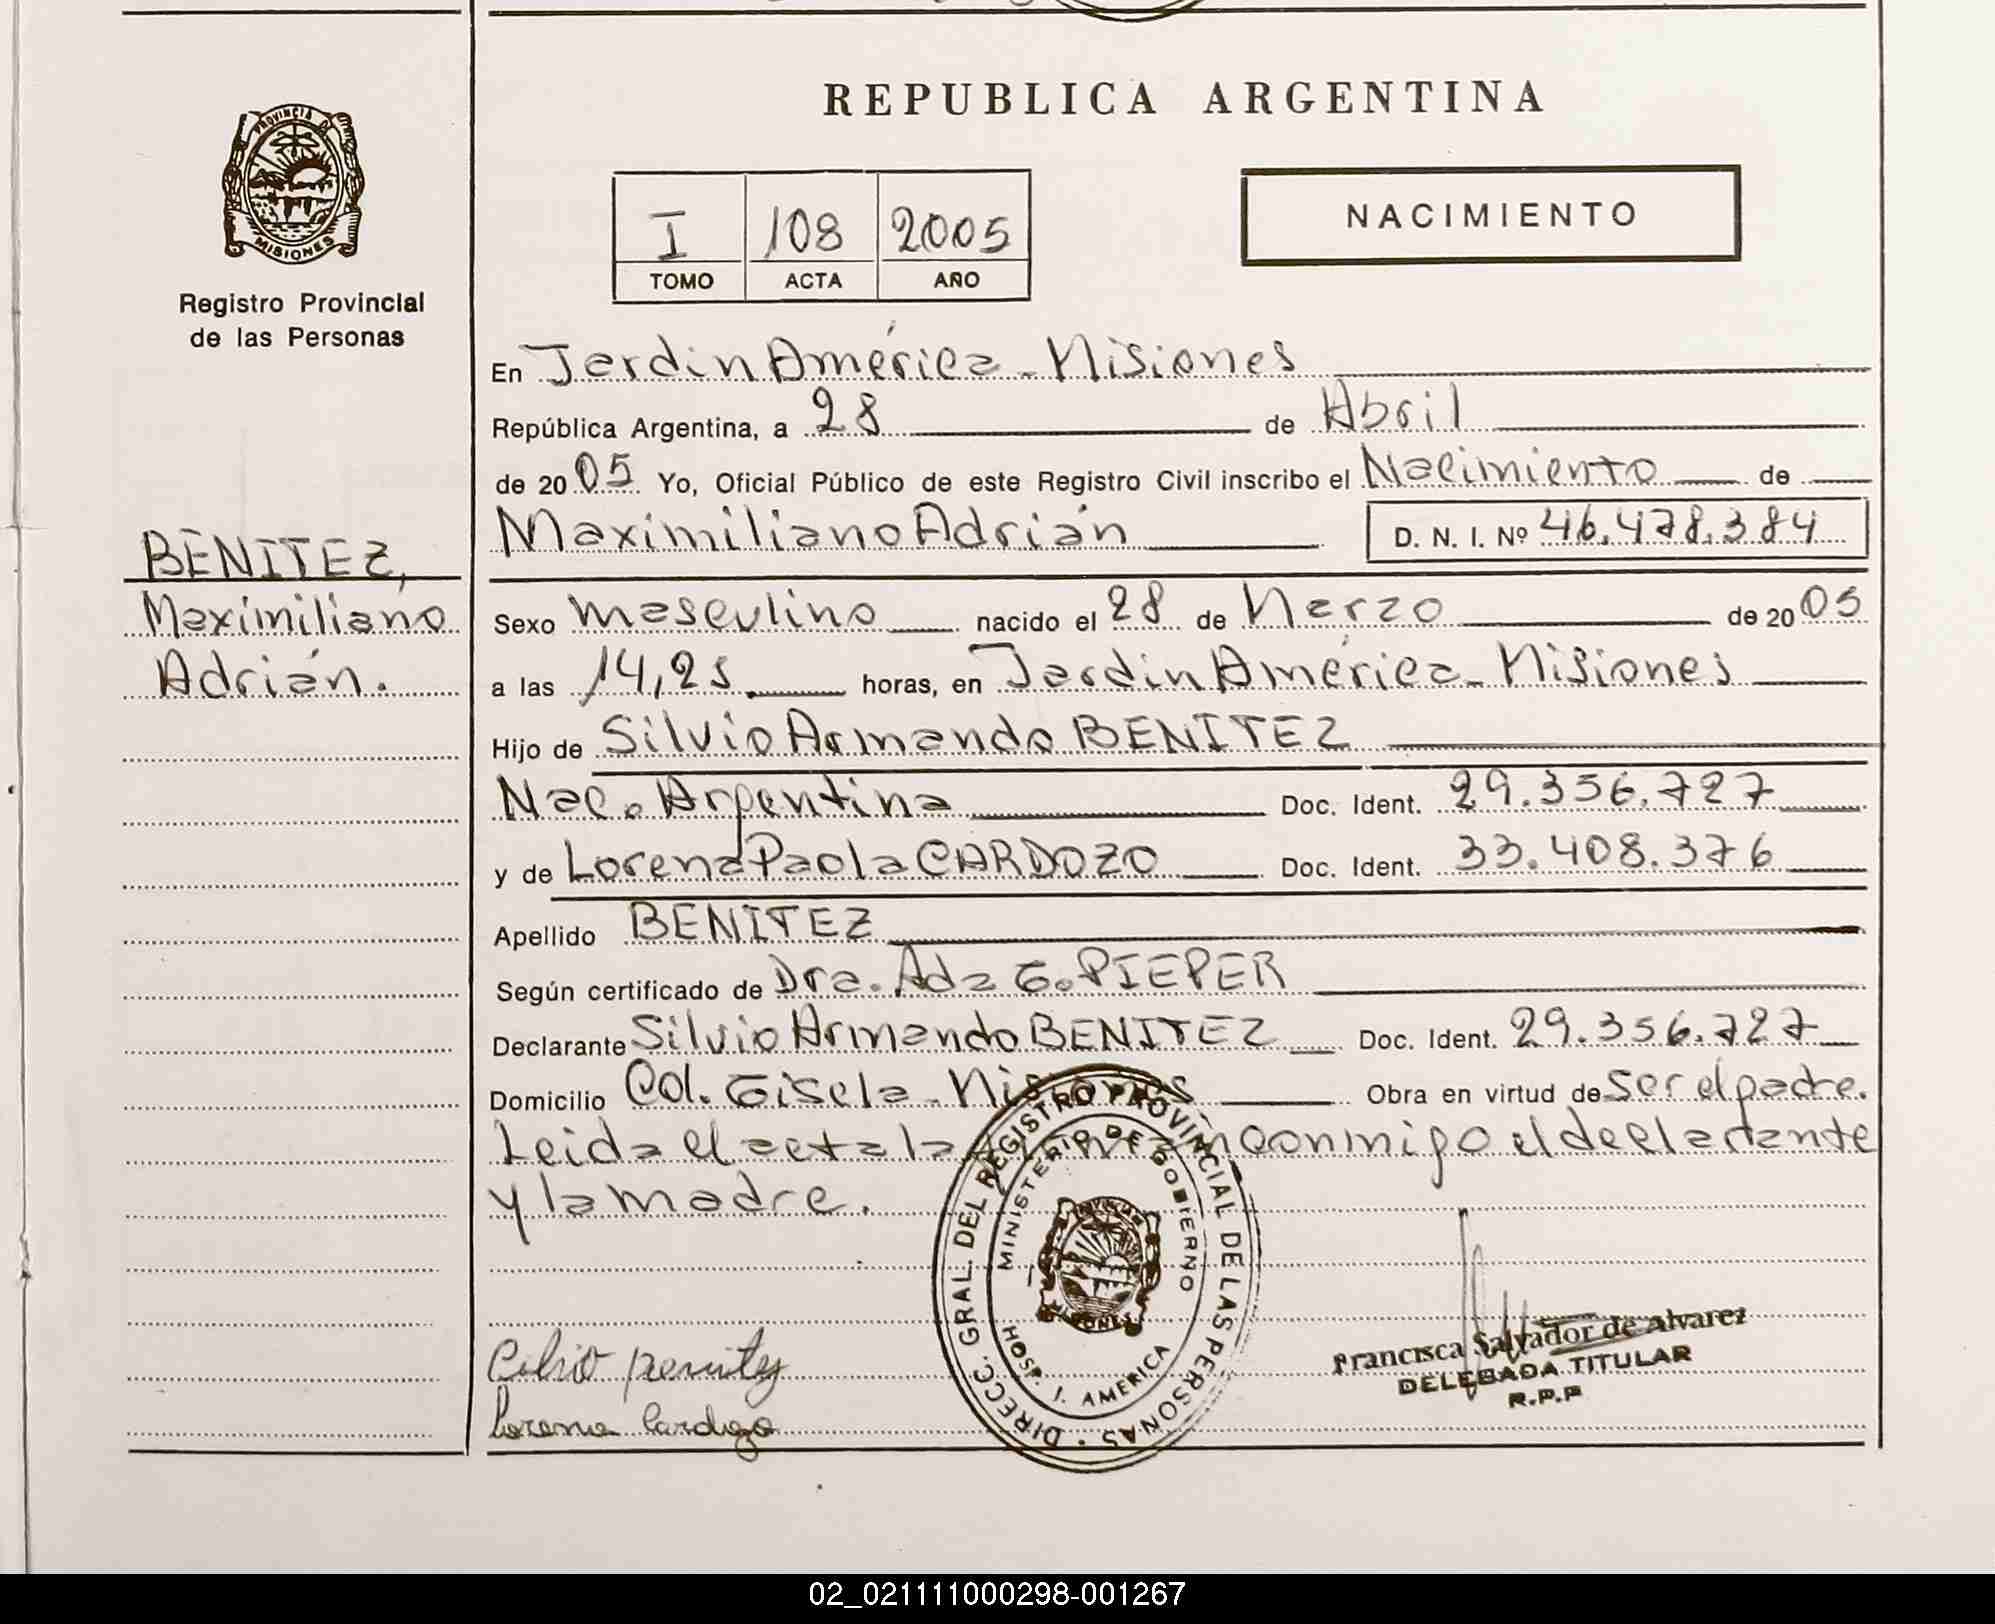 REPUBLICA ARGENTINA
PROVINCIA DE
MISIONES
Registro Provincial
de las Personas
I 108 2005
TOMO ACTA AÑO
NACIMIENTO
En Jardin América - Misiones
República Argentina, a 28 de Abril
de 2005 Yo, Oficial Público de este Registro Civil inscribo el Nacimiento de
Maximiliano Adrián D. N. I. Nº 46.478.384
BENITEZ,
Maximiliano
Adrián.
Sexo masculino nacido el 28 de Marzo de 2005
a las 14,25 horas, en Jardin América - Misiones
Hijo de Silvio Armando BENITEZ
Nac. Argentina Doc. Ident. 29.356.727
y de Lorena Paola CARDOZO Doc. Ident. 33.408.376
Apellido BENITEZ
Según certificado de Dra. Ada G. PIEPER
Declarante Silvio Armando BENITEZ Doc. Ident. 29.356.727
Domicilio Col. Gisela - Misiones Obra en virtud de ser el padre.
Leida el acta la conmigo el declarante
y la madre.
DIRECC. GRAL. DEL REGISTRO PROVINCIAL DE LAS PERSONAS
MINISTERIO DE GOBIERNO
HOSP. J. AMERICA
MISIONES
Lorena Cardozo
Francisca Salvador de Alvarez
DELEGADA TITULAR
R.P.P
02_021111000298-001267